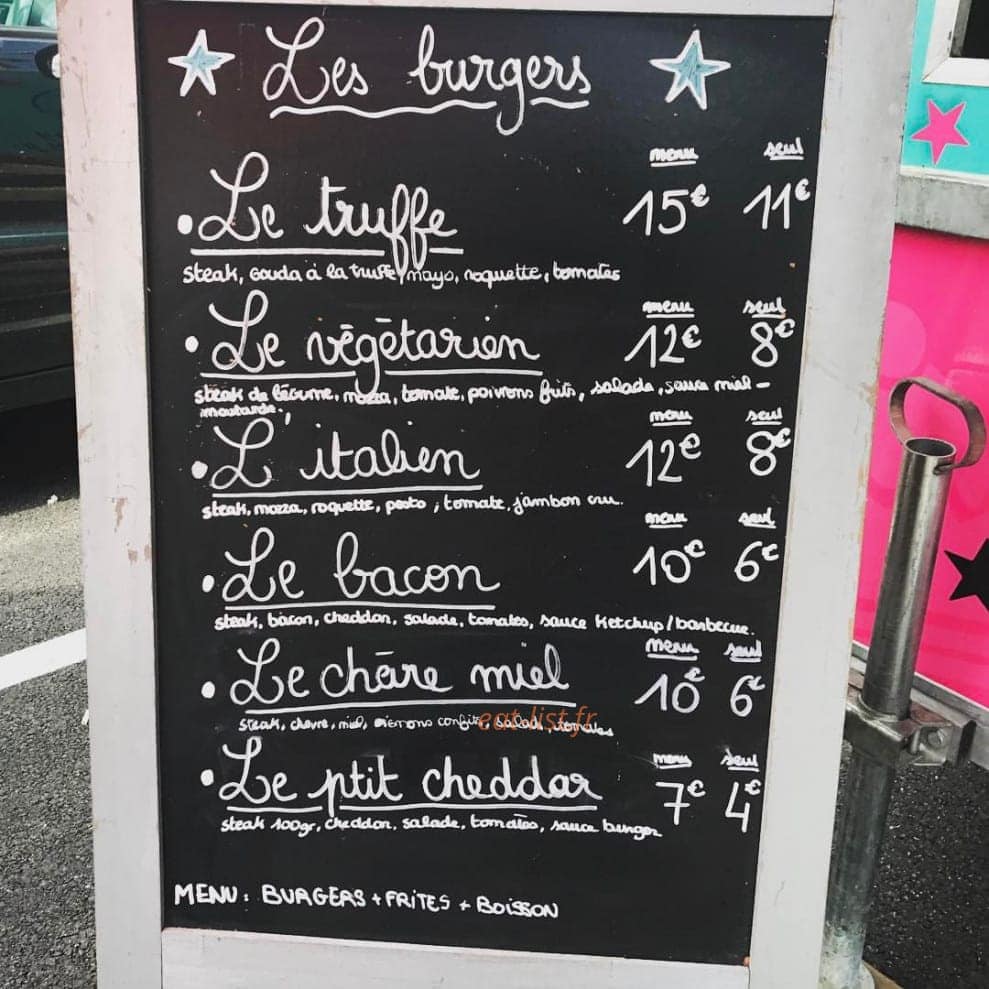 Les burgers
menu seul
• Le truffe 15€ 11€
steak, Gouda à la truffe, mayo, roquette, tomates
menu seul
• Le végétarien 12€ 8€
steak de légume, mozza, tomate, poivrons frits, salade, sauce miel -
moutarde.
menu seul
• L'italien 12€ 8€
steak, mozza, roquette, pesto, tomate, jambon cru.
menu seul
• Le bacon 10€ 6€
steak, bacon, cheddar, salade, tomates, sauce Ketchup/barbecue.
menu seul
• Le chèvre miel 10€ 6€
steak, chèvre, miel, oignons confits, salade, tomates
eat-list.fr
menu seul
• Le ptit cheddar 7€ 4€
steak 100gr, cheddar, salade, tomates, sauce burger
MENU : BURGERS + FRITES + BOISSON